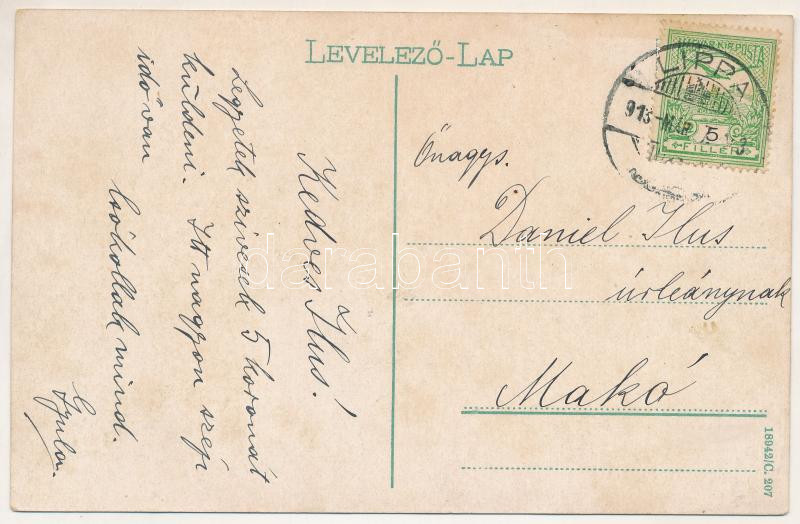 LEVELEZŐ-LAP
Kedves Ilus!
Legyetek szivesek 5 koronát
küldeni. Itt nagyon szép
idő van
Csókollak mind.
Gyula.
MAGYAR KIR. POSTA
5
FILLÉR
LIPPA
913
Önagys.
Daniel Ilus
úrleánynak
Makó
18942/C. 207
darabanth